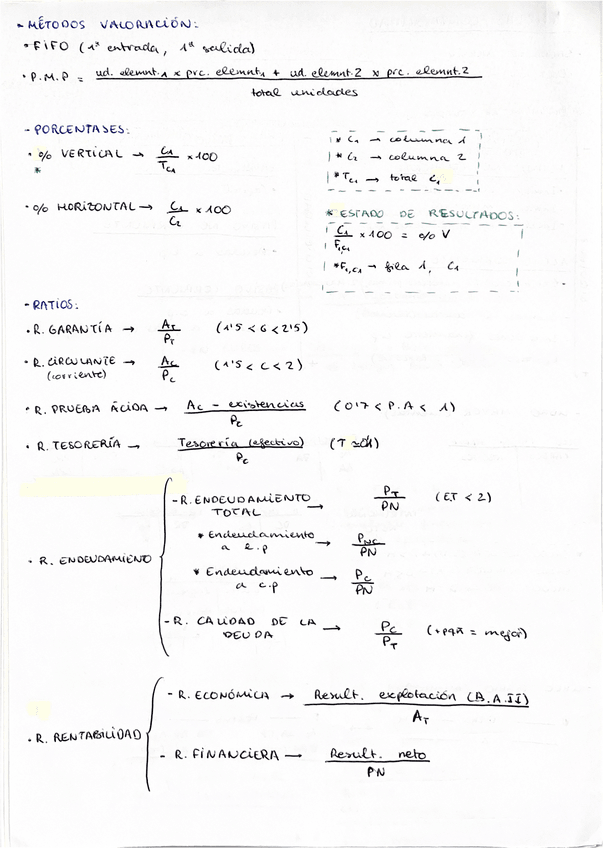 - MÉTODOS VALORACIÓN:
• FIFO (1ª entrada, 1ª salida)
• P.M.P = ud. elemnt.1 x prc. elemnt1 + ud. elemnt.2 x prc. elemnt.2
total unidades
- PORCENTAJES:
• % VERTICAL → C1 / TC1 x 100
*
* C1 → columna 1
* C2 → columna 2
* TC1 → total C1
• % HORIZONTAL → C1 / C2 x 100
* ESTADO DE RESULTADOS:
C1 / F1,C1 x 100 = % V
* F1,C1 → fila 1, C1
- RATIOS:
• R. GARANTÍA → AT / PT (1'5 < G < 2'5)
• R. CIRCULANTE → AC / PC (1'5 < C < 2)
(corriente)
• R. PRUEBA ÁCIDA → AC - existencias / PC (0'7 < P.A < 1)
• R. TESORERÍA → Tesorería (efectivo) / PC (T
• R. ENDEUDAMIENTO
- R. ENDEUDAMIENTO
TOTAL → PT / PN (E.T < 2)
* Endeudamiento
a l.p → PNC / PN
* Endeudamiento
a c.p → PC / PN
- R. CALIDAD DE LA
DEUDA → PC / PT (+pqñ = mejor)
• R. RENTABILIDAD
- R. ECONÓMICA → Result. explotación (B.A.II) / AT
- R. FINANCIERA → Result. neto / PN